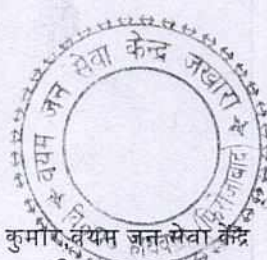 वयम जन सेवा केन्द्र जखारा
(फिरोजाबाद)
कुमार, वयम जन सेवा केंद्र